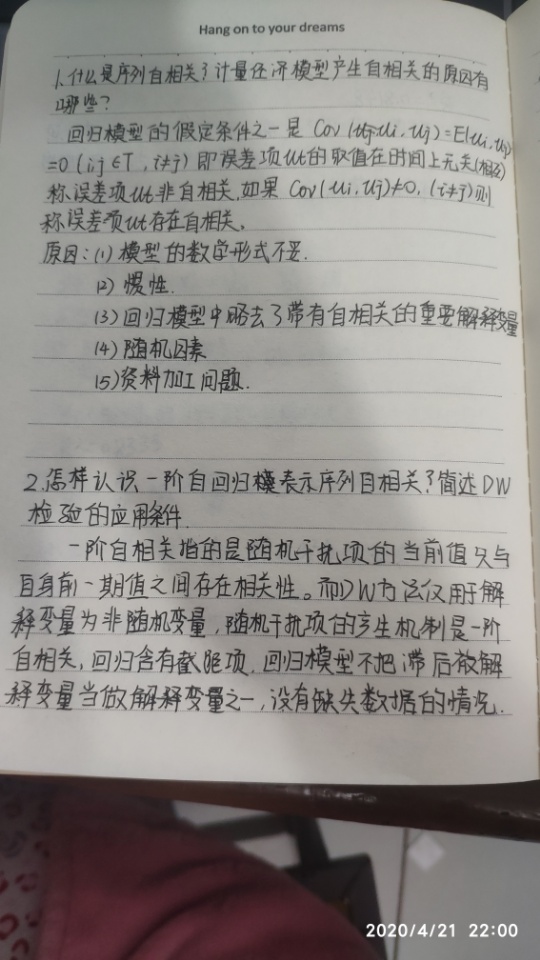 Hang on to your dreams
1.什么是序列自相关?计量经济模型产生自相关的原因有
哪些?
回归模型的假定条件之一是 Cov(ui, uj)=E(ui, uj)
=0 (i,j∈T, i≠j) 即误差项ut的取值在时间上无关(相互)
称误差项ut非自相关,如果 Cov(ui, uj)≠0, (i≠j)则
称误差项ut存在自相关。
原因:(1)模型的数学形式不妥.
(2)惯性.
(3)回归模型中略去了带有自相关的重要解释变量
(4)随机因素
(5)资料加工问题.
2.怎样认识一阶自回归模表示序列自相关?简述DW
检验的应用条件.
一阶自相关指的是随机干扰项的当前值只与
自身前一期值之间存在相关性。而DW方法仅用于解
释变量为非随机变量,随机干扰项的产生机制是一阶
自相关,回归含有截距项.回归模型不把滞后被解
释变量当做解释变量之一,没有缺失数据的情况.
2020/4/21 22:00